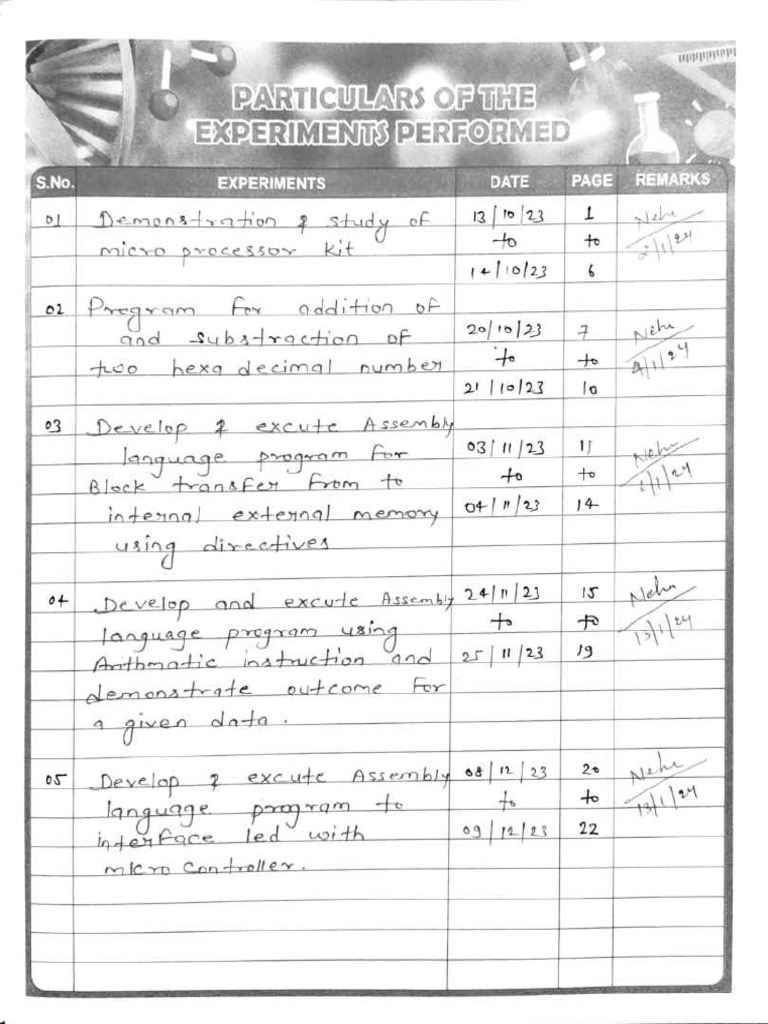 PARTICULARS OF THE
EXPERIMENTS PERFORMED
S.No. EXPERIMENTS DATE PAGE REMARKS
01 Demonstration & study of 13/10/23 1 Neha
micro processor kit to to 2/1/24
14/10/23 6
02 Program for addition of
and substraction of 20/10/23 7 Neha
two hexa decimal number to to /1/24
21/10/23 10
03 Develop & excute Assembly
language program for 03/11/23 11 Neha
Block transfer from to to to /1/24
internal external memory 04/11/23 14
using directives
04 Develop and excute Assembly 24/11/23 15 Neha
language program using to to 13/1/24
Arithmatic instruction and 25/11/23 19
demonstrate outcome for
a given data.
05 Develop & excute Assembly 08/12/23 20 Neha
language program to to to 13/1/24
interface led with 09/12/23 22
micro controller.